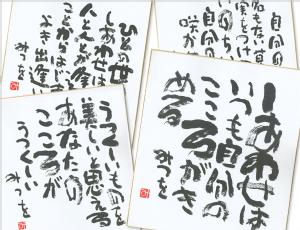 ひとの世
しあわせは
人と人が逢
ことからはじ
よき出逢い
みつを
名もない
実をつけ
自分の
咲か
うつくしいものを
美しいと思える
あなたの
こころが
うつくしい
みつを
しあわせは
いつも自分の
こころがき
める
みつを